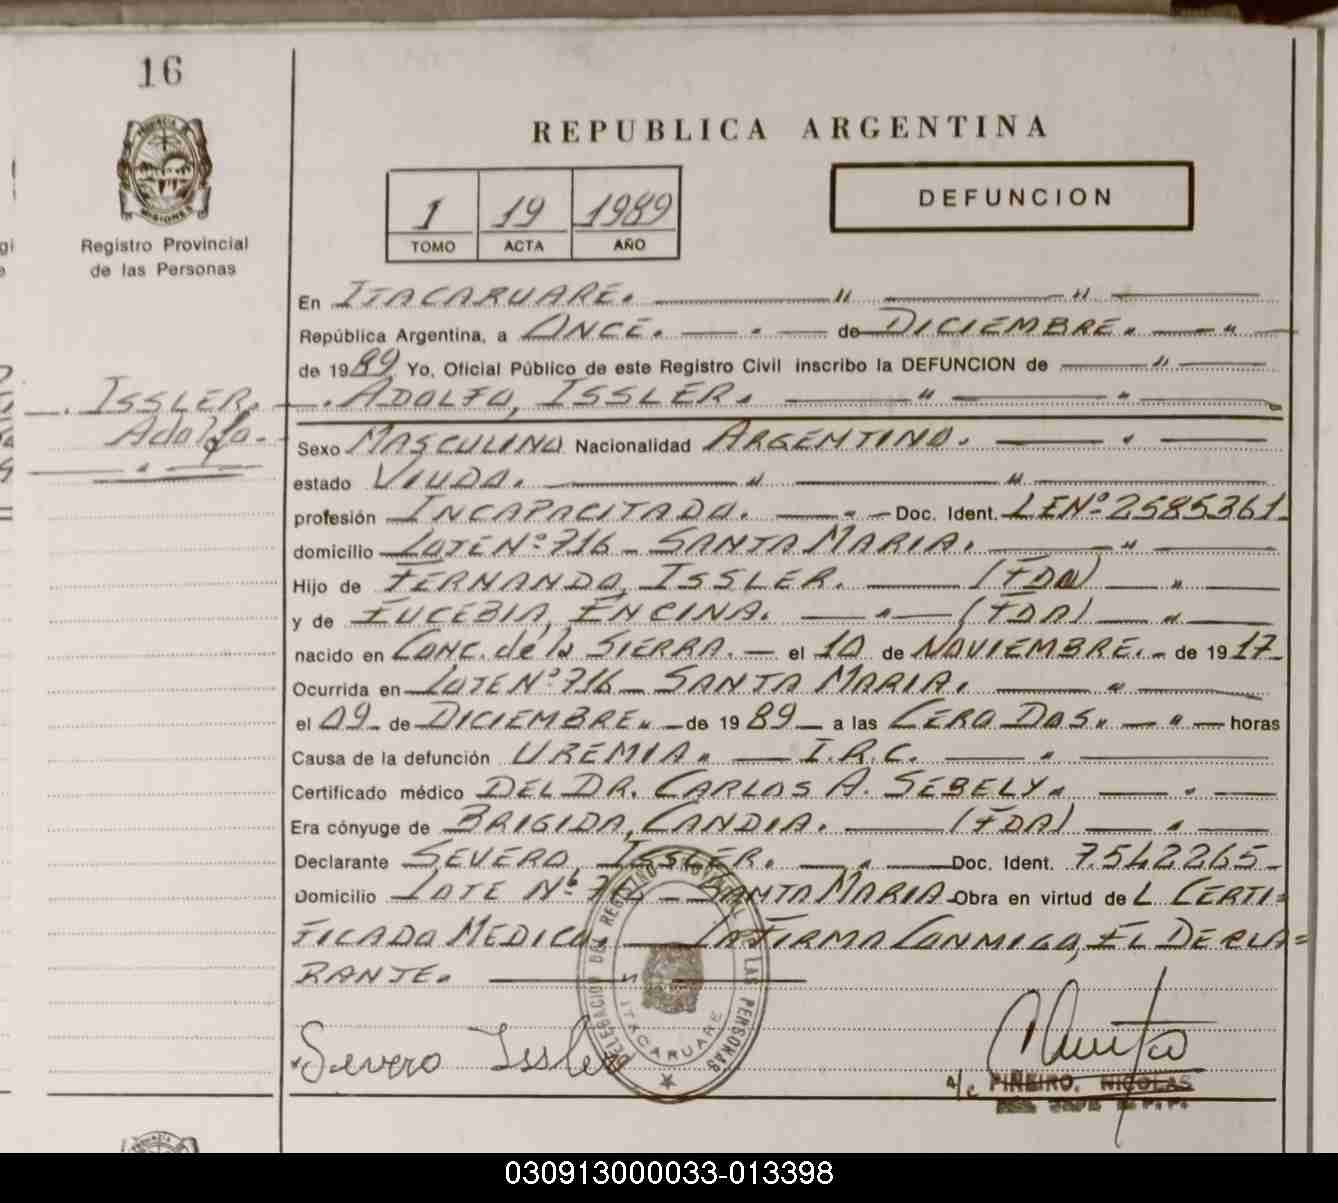 16
PROVINCIA DE
MISIONES
Registro Provincial
de las Personas
ISSLER.
Adolfo.
REPUBLICA ARGENTINA
1 19 1989
TOMO ACTA AÑO
DEFUNCION
En ITACARUARE.
República Argentina, a ONCE. de DICIEMBRE.
de 1989 Yo, Oficial Público de este Registro Civil inscribo la DEFUNCION de
ADOLFO, ISSLER.
Sexo MASCULINO Nacionalidad ARGENTINO.
estado VIUDO.
profesión INCAPACITADO. Doc. Ident. LENº 2585361
domicilio LOTE Nº 716 - SANTA MARIA.
Hijo de FERNANDO, ISSLER. (FDO)
y de EUCEBIA, ENCINA. (FDA)
nacido en CONC. de la SIERRA. el 10 de NOVIEMBRE. de 1917
Ocurrida en LOTE Nº 716 - SANTA MARIA.
el 09 de DICIEMBRE. de 1989 a las CERO DOS horas
Causa de la defunción UREMIA. I.R.C.
Certificado médico DEL DR. CARLOS A. SEBELY.
Era cónyuge de BRIGIDA, CANDIA. (FDA)
Declarante SEVERO, ISSLER. Doc. Ident. 7.542265
Domicilio LOTE Nº 716 - SANTA MARIA Obra en virtud de L CERTI=
FICADO MEDICO. LA FIRMA CONMIGO, EL DECLA=
RANTE.
Severo Issler
DELEGACION DEL REGISTRO PROVINCIAL DE LAS PERSONAS
ITACARUARE
a/c PIÑEIRO, NICOLAS
030913000033-013398